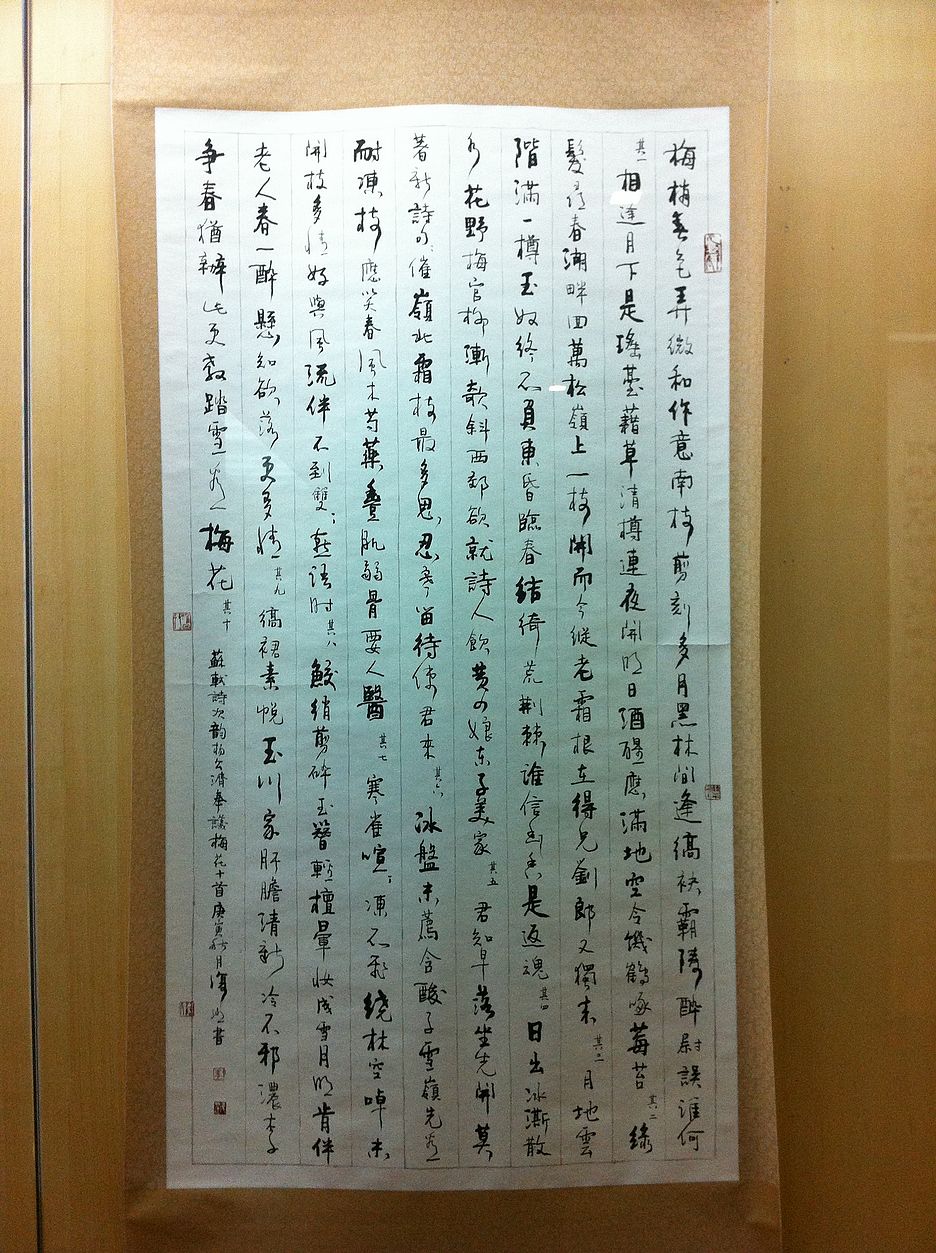 梅梢春色弄微和作意南枝剪刻多月黑林間逢縞袂霸陵醉尉誤誰何
其一 相逢月下是瑤臺藉草清樽連夜開明日酒醒應滿地空令饑鶴啄莓苔 其二 綠
髮尋春湖畔回萬松嶺上一枝開而今縱老霜根在得見劉郎又獨來 其三 月地雲
階滿一樽玉奴終不負東昏臨春結綺荒荊棘誰信幽香是返魂 其四 日出冰澌散
水花野梅官柳漸欹斜西郊欲就詩人飲黃四娘東子美家 其五 君知早落坐先開莫
著新詩句々催嶺北霜枝最多思忍寒留待使君來 其六 冰盤未薦含酸子雪嶺先看
耐凍枝應笑春風木芍藥豐肌弱骨要人醫 其七 寒雀喧々凍不飛繞林空啅未
開枝多情好與風流伴不到雙々燕語時 其八 鮫綃剪碎玉簪輕檀暈妝成雪月明肯伴
老人春一醉懸知欲落更多情 其九 縞裙素帨玉川家肝膽清新冷不邪濃李
爭春猶辦此更教踏雪看梅花 其十
蘇軾詩次韵楊公濟奉議梅花十首庚寅秋月海書